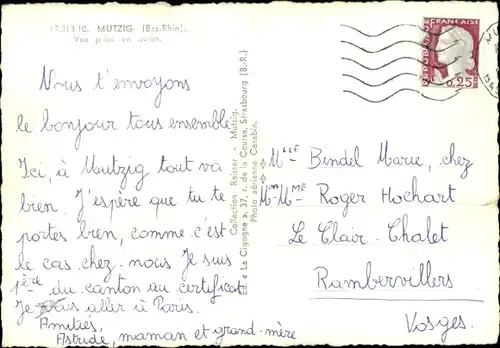 17.313.10. MUTZIG (Bas-Rhin).
Vue prise en avion.
Nous t'envoyons
le bonjour tous ensemble.
Ici, à Mutzig tout va
bien. J'espère que tu te
portes bien, comme c'est
le cas chez-nous Je suis
1ère du canton au certificat
Je vais aller à Paris.
Amitiés,
Astride, maman et grand-mère
Collection Reisser - Mutzig.
« La Cigogne », 37, r. de la Course, Strasbourg (B.-R.)
Photo aérienne Carabin.
REPUBLIQUE FRANÇAISE
0,25
MLLE Bindel Marie, chez
Mr-MME Roger Hochart
Le Clair-Chalet
Rambervillers
Vosges.